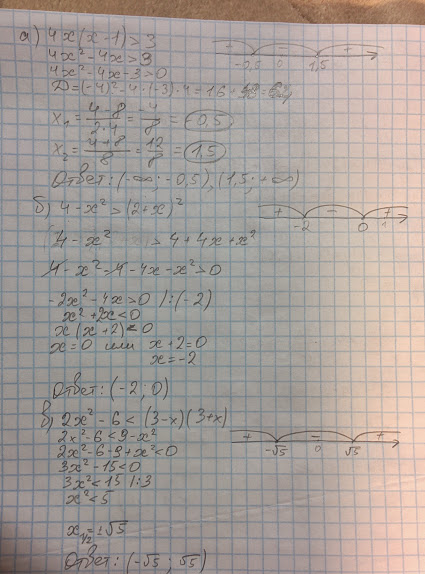 а) 4x(x-1)>3
+ - +
-0,5 0 1,5
4x²-4x>3
4x²-4x-3>0
D=(-4)²-4·(-3)·4=16+48=64
x₁=(4-8)/(2·4)=-4/8=-0,5
x₂=(4+8)/8=12/8=1,5
Ответ: (-∞;-0,5),(1,5;+∞)
б) 4-x²>(2+x)²
+ - +
-2 0 1
4-x²>4+4x+x²
4-x²-4-4x-x²>0
-2x²-4x>0 |:(-2)
x²+2x<0
x(x+2)=0
x=0 или x+2=0
x=-2
Ответ: (-2;0)
в) 2x²-6<(3-x)(3+x)
+ - +
-√5 0 √5
2x²-6<9-x²
2x²-6-9+x²<0
3x²-15<0
3x²<15 |:3
x²<5
x₁/₂=±√5
Ответ: (-√5;√5)